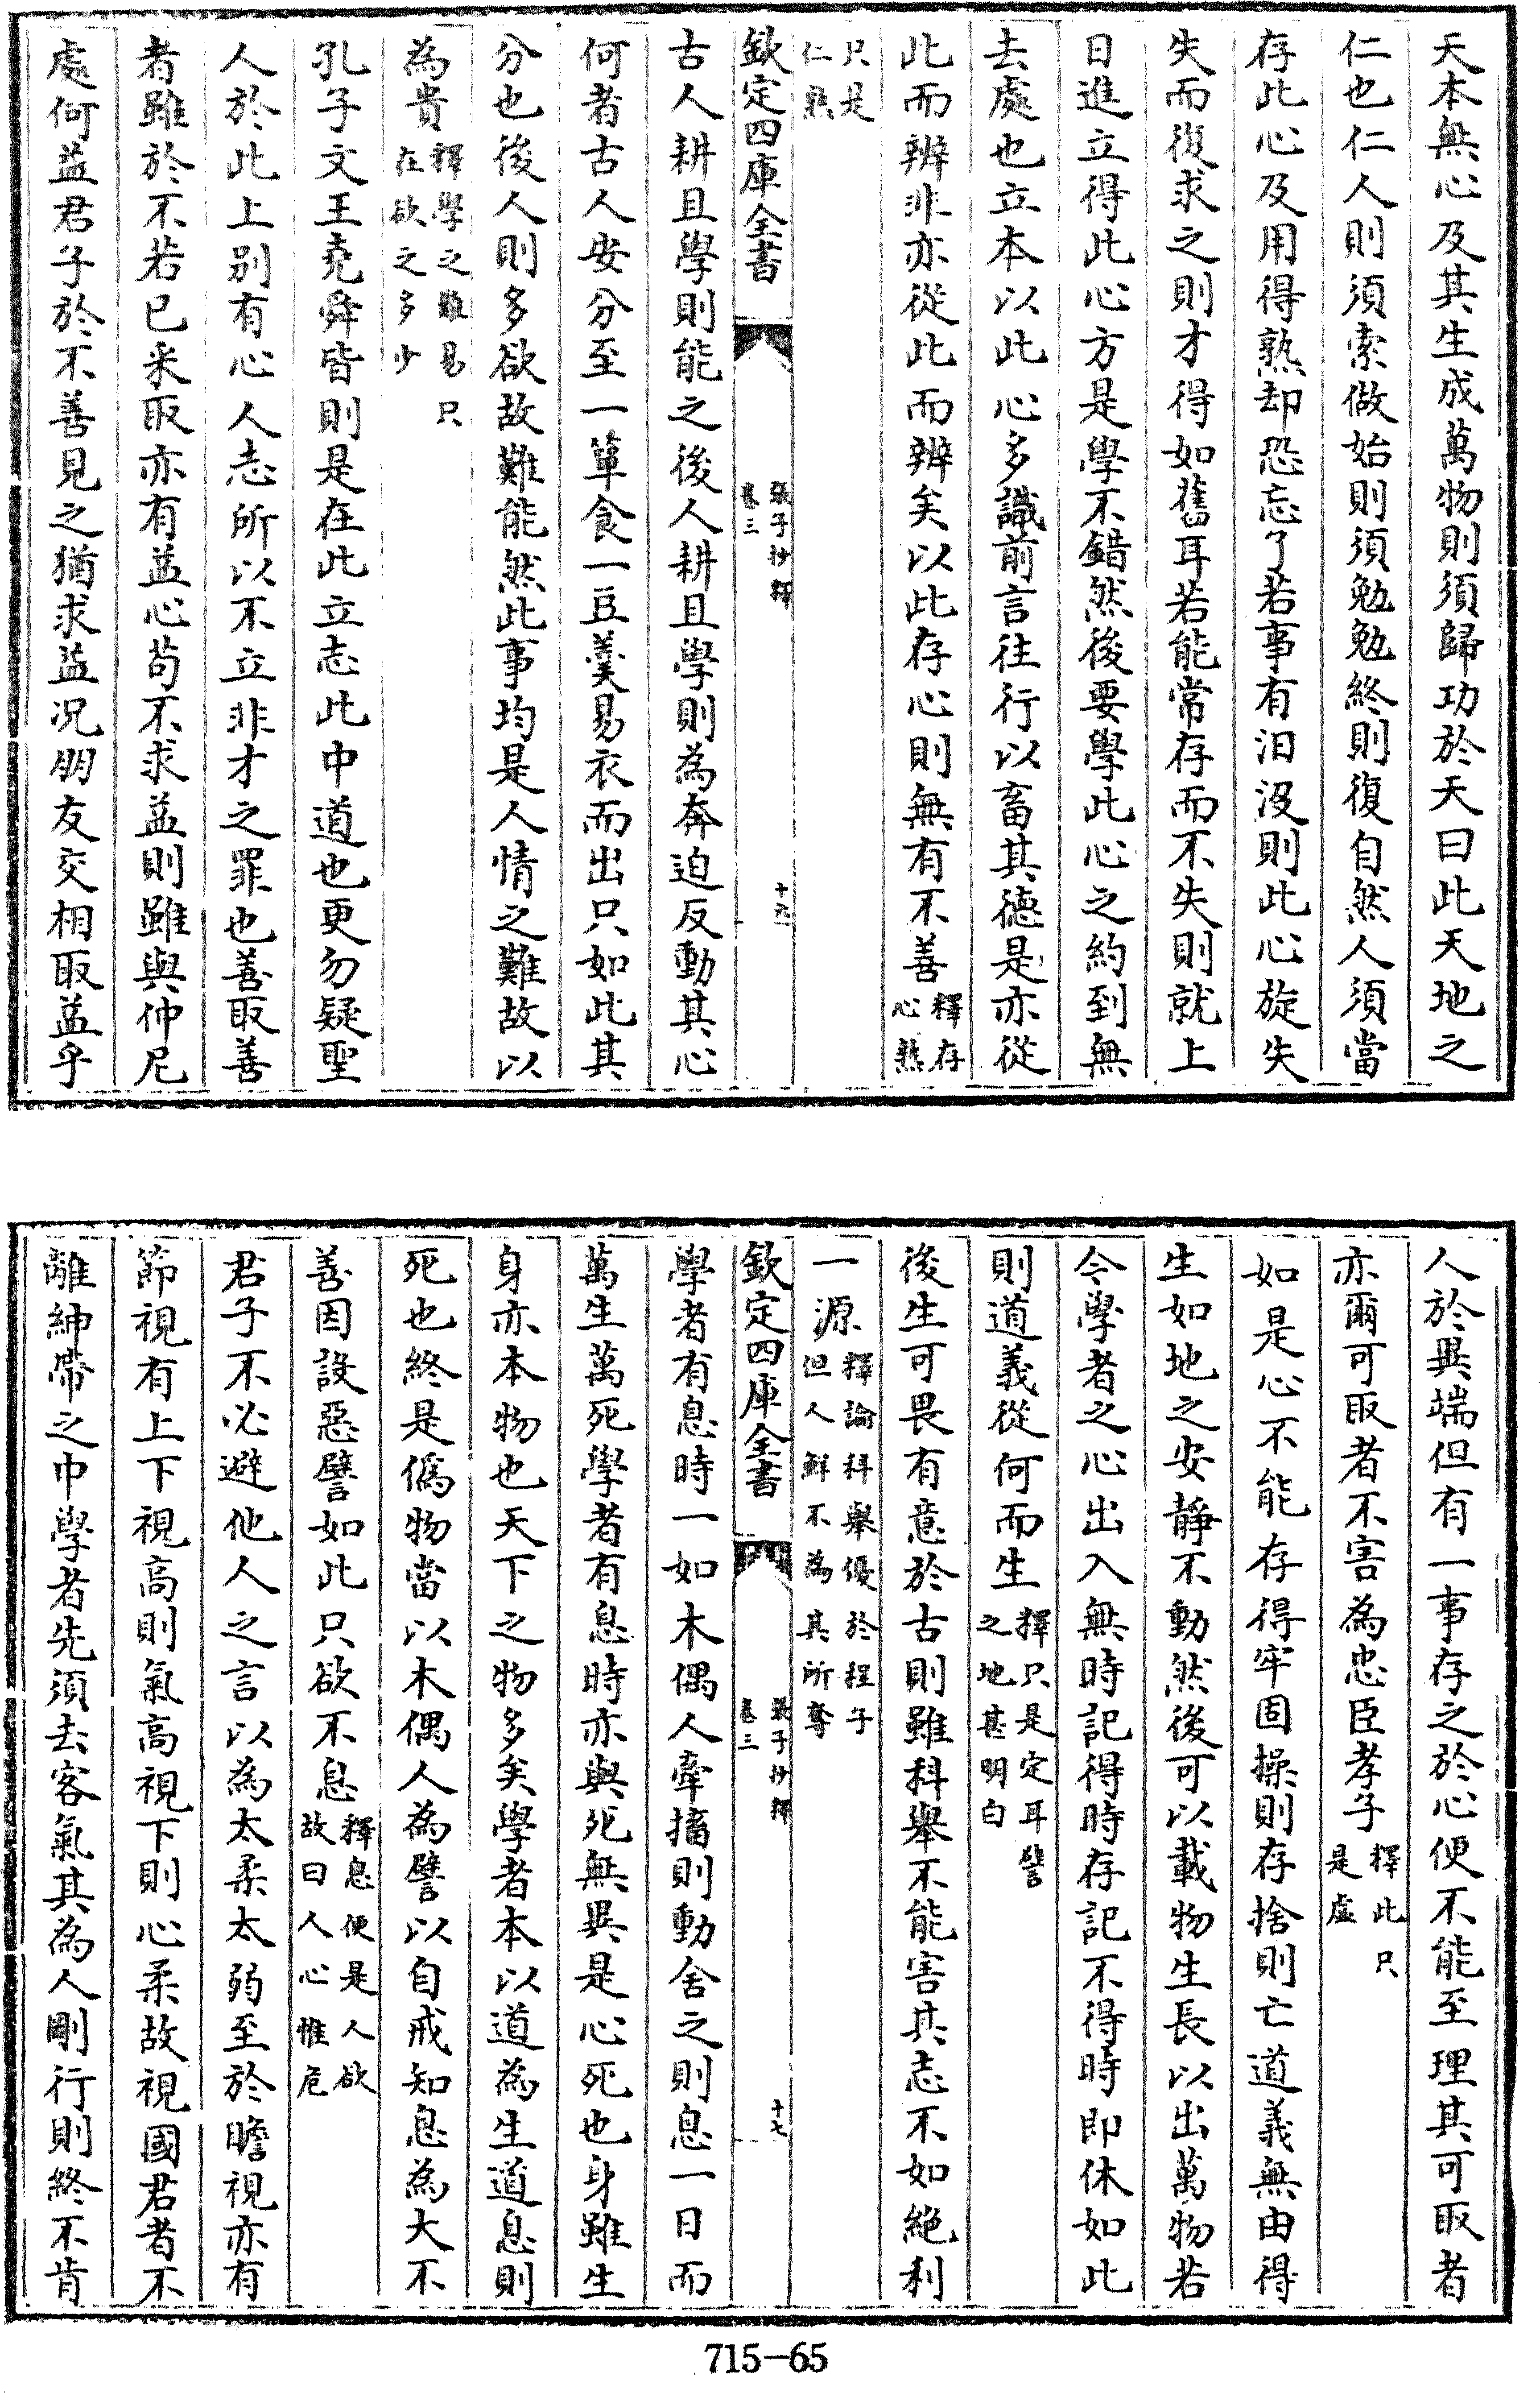 天本無心及其生成萬物則須歸功於天曰此天地之
仁也仁人則須索做始則須勉勉終則復自然人須當
存此心及用得熟却恐忘了若事有汨沒則此心旋失
失而復求之則才得如舊耳若能常存而不失則就上
日進立得此心方是學不錯然後要學此心之約到無
去處也立本以此心多識前言往行以畜其德是亦從
此而辨非亦從此而辨矣以此存心則無有不善釋存心熟
只是仁熟
欽定四庫全書
張子抄釋
卷三
十六
古人耕且學則能之後人耕且學則為奔迫反動其心
何者古人安分至一簞食一豆羹易衣而出只如此其
分也後人則多欲故難能然此事均是人情之難故以
為貴釋學之難易只在欲之多少
孔子文王堯舜皆則是在此立志此中道也更勿疑聖
人於此上別有心人志所以不立非才之罪也善取善
者雖於不若已采取亦有益心苟不求益則雖與仲尼
處何益君子於不善見之猶求益況朋友交相取益乎
人於異端但有一事存之於心便不能至理其可取者
亦爾可取者不害為忠臣孝子釋此只是虛
如是心不能存得牢固操則存捨則亡道義無由得
生如地之安靜不動然後可以載物生長以出萬物若
今學者之心出入無時記得時存記不得時即休如此
則道義從何而生釋只是定耳譬之地甚明白
後生可畏有意於古則雖科舉不能害其志不如絕利
一源釋論科舉優於程子但人鮮不為其所奪
欽定四庫全書
張子抄釋
卷三
十七
學者有息時一如木偶人牽搐則動舍之則息一日而
萬生萬死學者有息時亦與死無異是心死也身雖生
身亦本物也天下之物多矣學者本以道為生道息則
死也終是偽物當以木偶人為譬以自戒知息為大不
善因設惡譬如此只欲不息釋息便是人欲故曰人心惟危
君子不必避他人之言以為太柔太弱至於瞻視亦有
節視有上下視高則氣高視下則心柔故視國君者不
離紳帶之中學者先須去客氣其為人剛行則終不肯
715-65